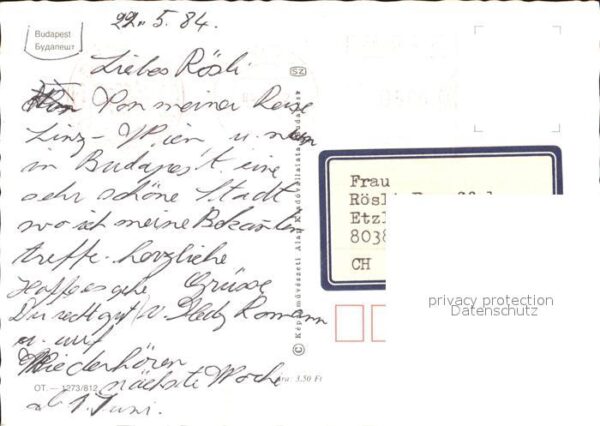 22. 5. 84.
Budapest
Будапешт
Liebes Rösli
Von meiner Reise
Linz - Wien, u. nun
in Budapest. eine
sehr schöne Stadt
wo ich meine Bekannten
treffe. herzliche
Hoffe es gehe Grüsse
Dir recht gut v. Hedy Romann
u. auf
Wiederhören
nächste Woche
ab 1. Juni.
OT. — 1273/812
Ára: 3.50 Ft
SZ
© Képzőművészeti Alap Kiadóvállalata, Budapest
Frau
Rösli
Etzl
8038
CH
privacy protection
Datenschutz